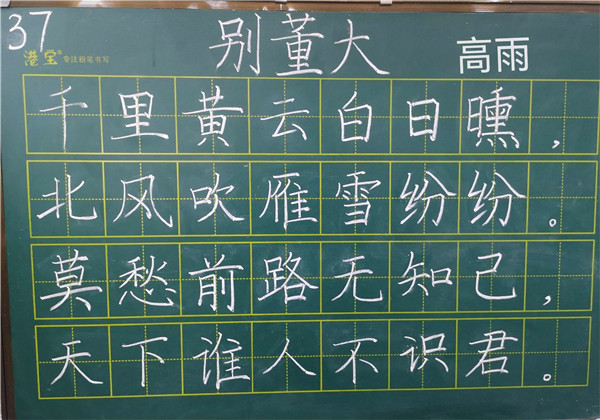 37
港宝® 专注粉笔书写
别董大 高雨
千里黄云白日曛，
北风吹雁雪纷纷。
莫愁前路无知己，
天下谁人不识君。